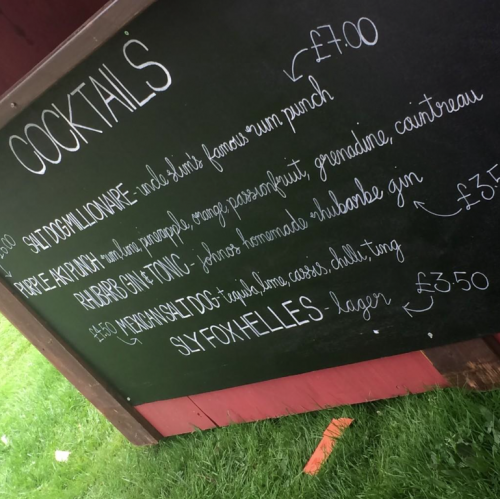 COCKTAILS
£7.00
SALTDOG MILLIONAIRE - uncle slim's famous rum punch
PURPLE AKI PUNCH - rum, lime, pineapple, orange, passionfruit, grenadine, cointreau
RHUBARB GIN & TONIC - johno's homemade rhubarbe gin
£3.5
£4.50 MEXICAN SALTDOG - tequila, lime, cassis, chilli, ting
SLY FOX HELLES - lager £3.50